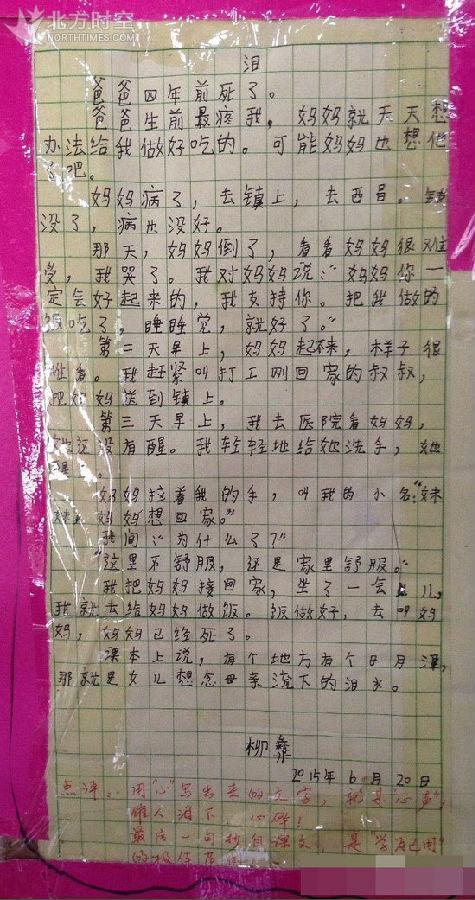 北方时空
NORTHTIMES.COM
泪
爸爸四年前死了。
爸爸生前最疼我，妈妈就天天想
办法给我做好吃的。可能妈妈也想他
了吧。
妈妈病了，去镇上，去西昌。钱
没了，病也没好。
那天，妈妈倒了，看看妈妈很难
受，我哭了。我对妈妈说：“妈妈你一
定会好起来的，我支持你。把我做的
饭吃了，睡睡觉，就好了。”
第二天早上，妈妈起不来，样子很
难看。我赶紧叫打工刚回家的叔叔，
把妈妈送到镇上。
第三天早上，我去医院看妈妈，
她还没有醒。我轻轻地给她洗手，她
醒了。
妈妈拉着我的手，叫我的小名：“妹
妹，妈妈想回家。”
我问：“为什么了？”
“这里不舒服，还是家里舒服。”
我把妈妈接回家，坐了一会儿，
我就去给妈妈做饭。饭做好，去叫妈
妈，妈妈已经死了。
课本上说，有个地方有个日月潭，
那就是女儿想念母亲流下的泪水。
柳彝
2015年6月20日
点评：用“心”写出来的文字，就是“心声”，
催人泪下 心碎！
最后一句抄自课文，是“学为己用”
的极佳